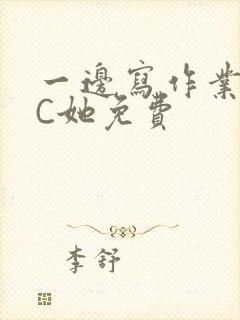 一邊寫作業
C她免費
李舒